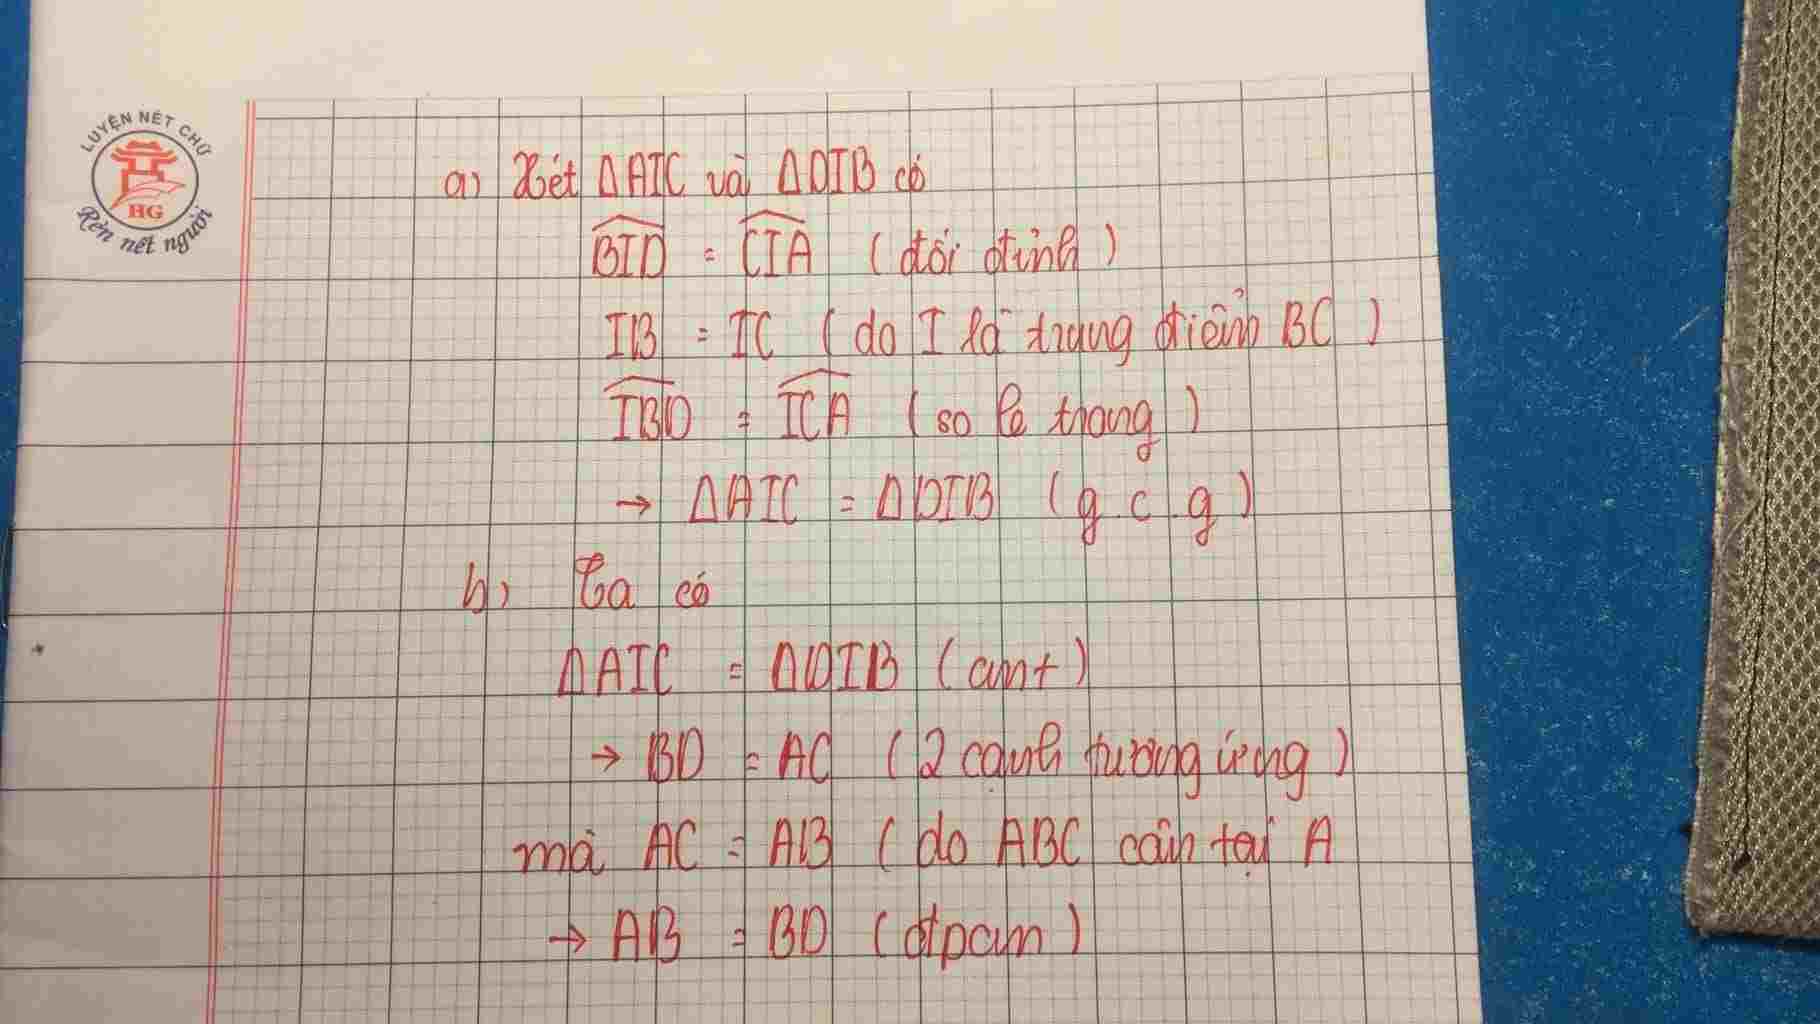 LUYỆN NÉT CHỮ
HG
Rèn nết người
a) Xét ΔAIC và ΔDIB có
\widehat{BID} = \widehat{CIA} (đối đỉnh)
IB = IC (do I là trung điểm BC)
\widehat{IBD} = \widehat{ICA} (so le trong)
→ ΔAIC = ΔDIB (g.c.g)
b) Ta có
ΔAIC = ΔDIB (cmt)
→ BD = AC (2 cạnh tương ứng)
mà AC = AB (do ABC cân tại A
→ AB = BD (đpcm)